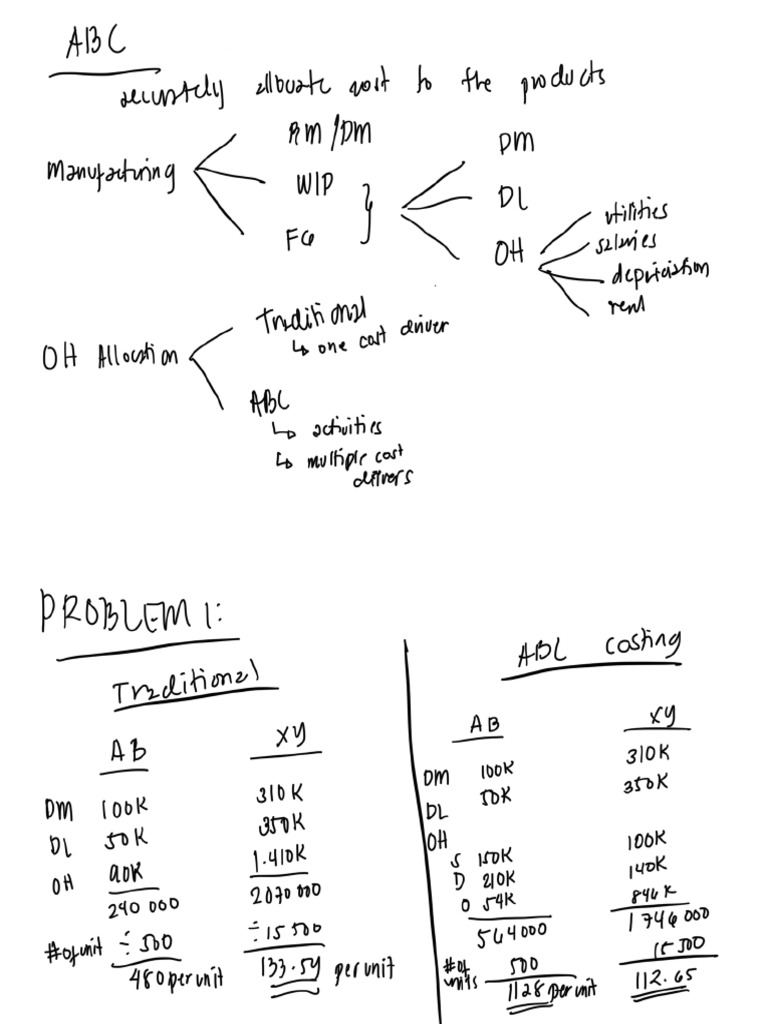 ABC
accurately allocate cost to the products
Manufacturing
RM/DM
WIP
FG
DM
DL
OH
utilities
salaries
depreciation
rent
OH Allocation
Traditional
↳ one cost driver
ABC
↳ activities
↳ multiple cost
drivers
PROBLEM 1:
Traditional
AB XY
DM 100K 310K
DL 50K 350K
OH 90K 1.410K
240 000 2070 000
# of unit ÷ 500 ÷ 15 500
480 per unit 133.54 per unit
ABC Costing
AB XY
DM 100K 310K
DL 50K 350K
OH
S 150K 100K
D 210K 140K
O 54K 846K
564000 1 746 000
# of
units 500 15 500
1128 per unit 112.65